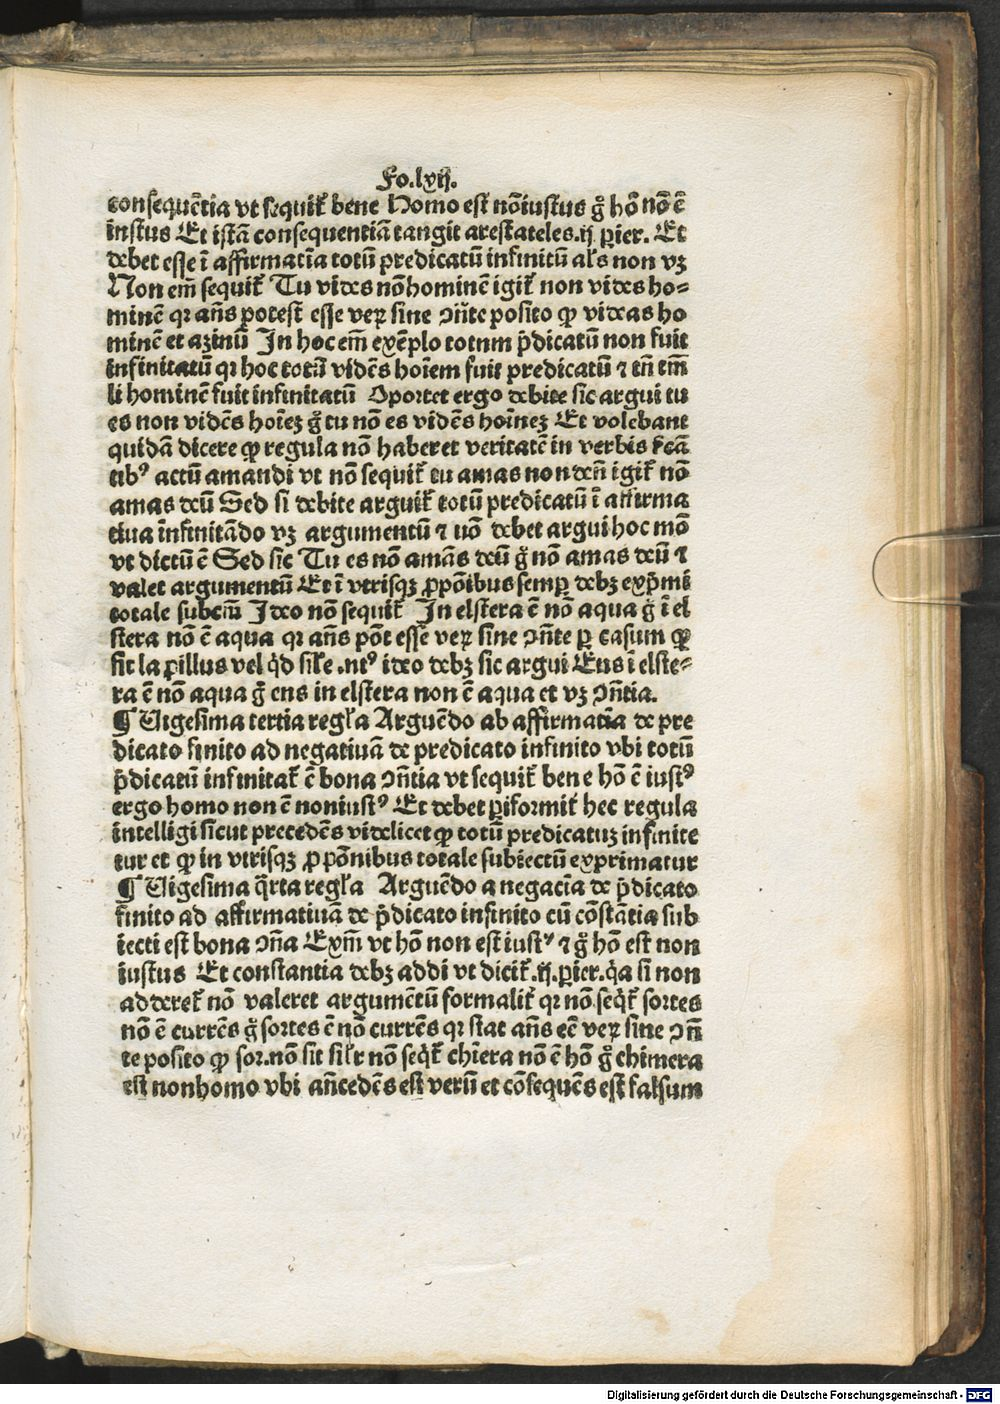 Fo.lxij.
consequẽtia vt sequit᷑ bene Homo est nõiustus gͦ hõ nõ ẽ
iustus Et istã consequentiã tangit arestateles.ij ꝑier. Et
debet esse ĩ affirmatĩa totũ predicatũ infinitũ als non vꝫ
Non em̃ sequit᷑ Tu vides nõhominẽ igit᷑ non vides ho-
minẽ qꝛ añs potest esse veꝝ sine ↄñte posito ꝙ videas ho
minẽ et azinũ In hoc em̃ exẽplo totum p̃dicatũ non fuit
infinitatũ qꝛ hoc totũ vidẽs hoĩem fuit predicatũ ⁊ tñ tm̃
li hominẽ fuit infinitatũ Oportet ergo debite sic argui tu
es non vidẽs hoĩeꝫ gͦ tu nõ es vidẽs hoĩneꝫ Et volebant
quidã dicere ꝙ regula nõ haberet veritatẽ in verbis
tibꝰ actũ amandi vt nõ sequit᷑ tu amas non deũ igit᷑ nõ
amas deũ Sed si debite arguit᷑ totũ predicatũ ĩ affirma
tiua ĩnfinitãdo vꝫ argumentũ ⁊ nõ debet argui hoc mõ
vt dictũ ẽ Sed sic Tu es nõ amãs deũ gͦ nõ amas deũ ⁊
valet argumentũ Et ĩ vtrisqꝫ ꝓpõibus semꝑ debꝫ exp̃mi
totale subcm̃ Ideo nõ sequit᷑ In elstera ẽ nõ aqua gͦ ĩ el
stera nõ ẽ aqua qꝛ añs põt esse veꝝ sine ↄñte ꝑ casum ꝙ
sit lapillus vel qͥd sile .ntꝰ ideo debꝫ sic argui Ens ĩ elste-
ra ẽ nõ aqua gͦ ens in elstera non ẽ aqua et vꝫ ↄñtia.
¶ Uigesima tertia regl'a Arguẽdo ab affirmatĩa de pre
dicato finito ad negatiuã de predicato infinito vbi totũ
p̃dicatũ infinitat᷑ ẽ bona ↄñtia vt sequit᷑ bene hõ ẽ iustꝰ
ergo homo non ẽ noniustꝰ Et debet ꝑiformit᷑ hec regula
intelligi sicut precedẽs videlicet ꝙ totũ predicatuꝫ infinite
tur et ꝙ in vtrisqꝫ ꝓpõnibus totale subiectũ exprimatur
¶ Uigesima qͣrta regl'a Arguẽdo a negacĩa de p̃dicato
finito ad affirmatiuã de p̃dicato infinito cũ cõstãtia sub
iecti est bona ↄña Exm̃ vt hõ non est iustꝰ ⁊ gͦ hõ est non
iustus Et constantia debꝫ addi vt dicit᷑.ij.ꝑier.qͥa si non
adderet᷑ nõ valeret argumẽtũ formalit᷑ qꝛ nõ.seqͥt᷑ sortes
nõ ẽ currẽs gͦ sortes ẽ nõ currẽs qꝛ stat añs eẽ veꝝ sine ↄñ
te posito ꝙ sor.nõ sit sil'r nõ seqͥt᷑ chĩera nõ ẽ hõ gͦ chimera
est nonhomo vbi añcedẽs est verũ et cõsequẽs est falsum
Digitalisierung gefördert durch die Deutsche Forschungsgemeinschaft - DFG